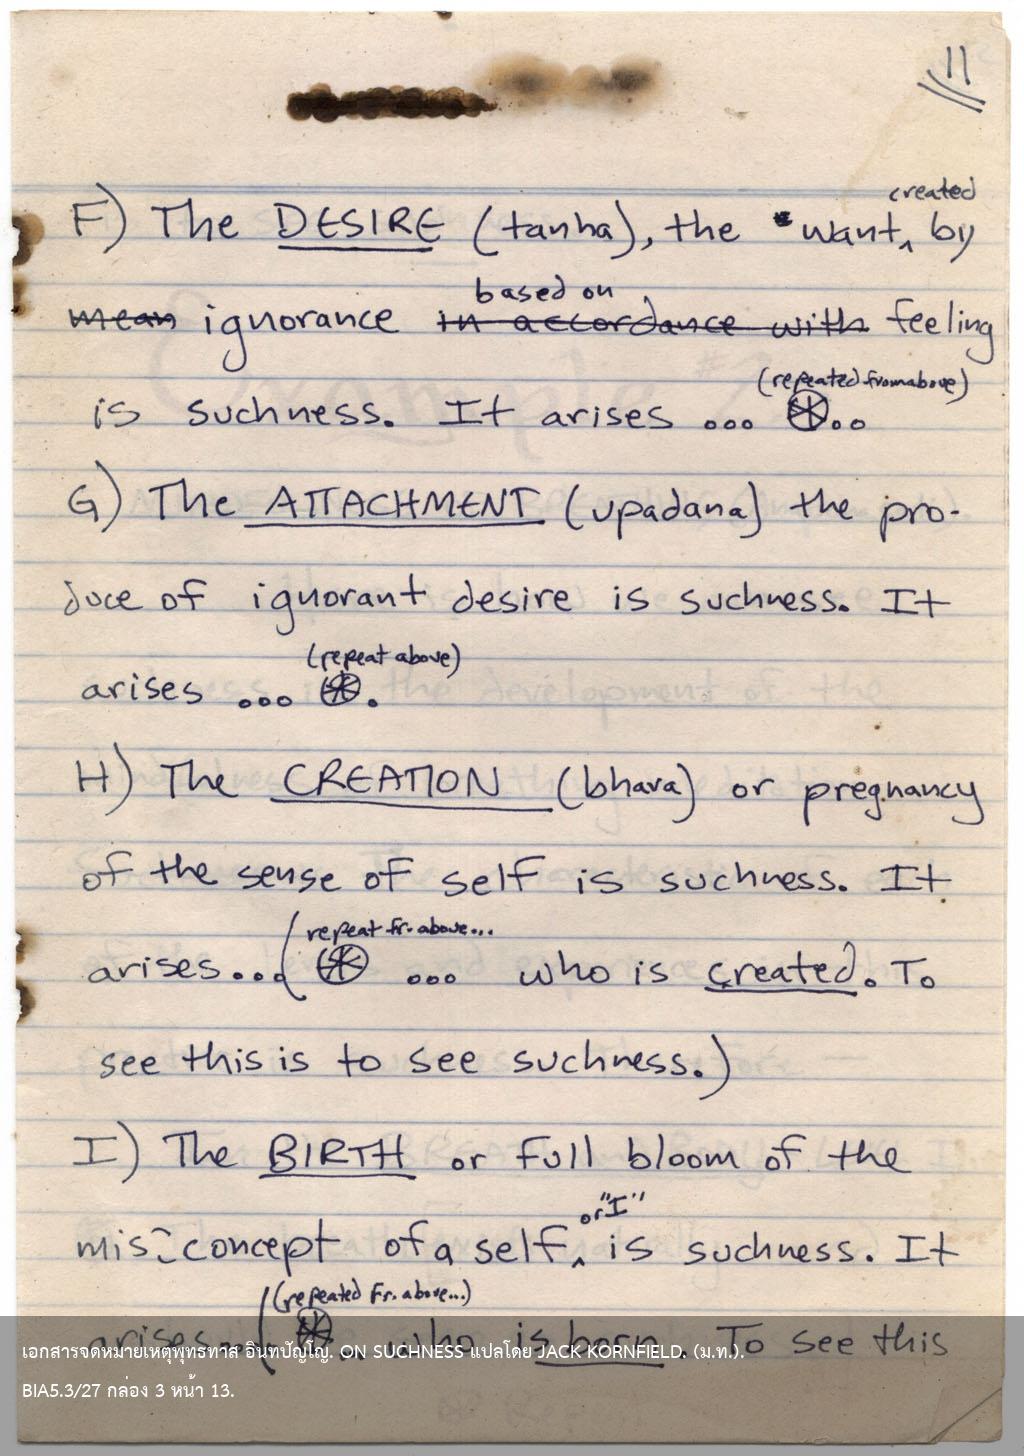 11
created
F) The DESIRE (tanha), the "want, by
based on
mean ignorance in accordance with feeling
(repeated from above)
is suchness. It arises ... ..
G) The ATTACHMENT (upadana) the pro-
duce of ignorant desire is suchness. It
(repeat above)
arises ... .
H) The CREATION (bhava) or pregnancy
of the sense of self is suchness. It
repeat fr. above...
arises...( ... who is created. To
see this is to see suchness.)
I) The BIRTH or full bloom of the
or "I"
mis-concept of a self is suchness. It
(repeated fr. above...)
arises ...( .. who is born. To see this
เอกสารจดหมายเหตุพุทธทาส อินทปัญโญ. ON SUCHNESS แปลโดย JACK KORNFIELD. (ม.ท.).
BIA5.3/27 กล่อง 3 หน้า 13.